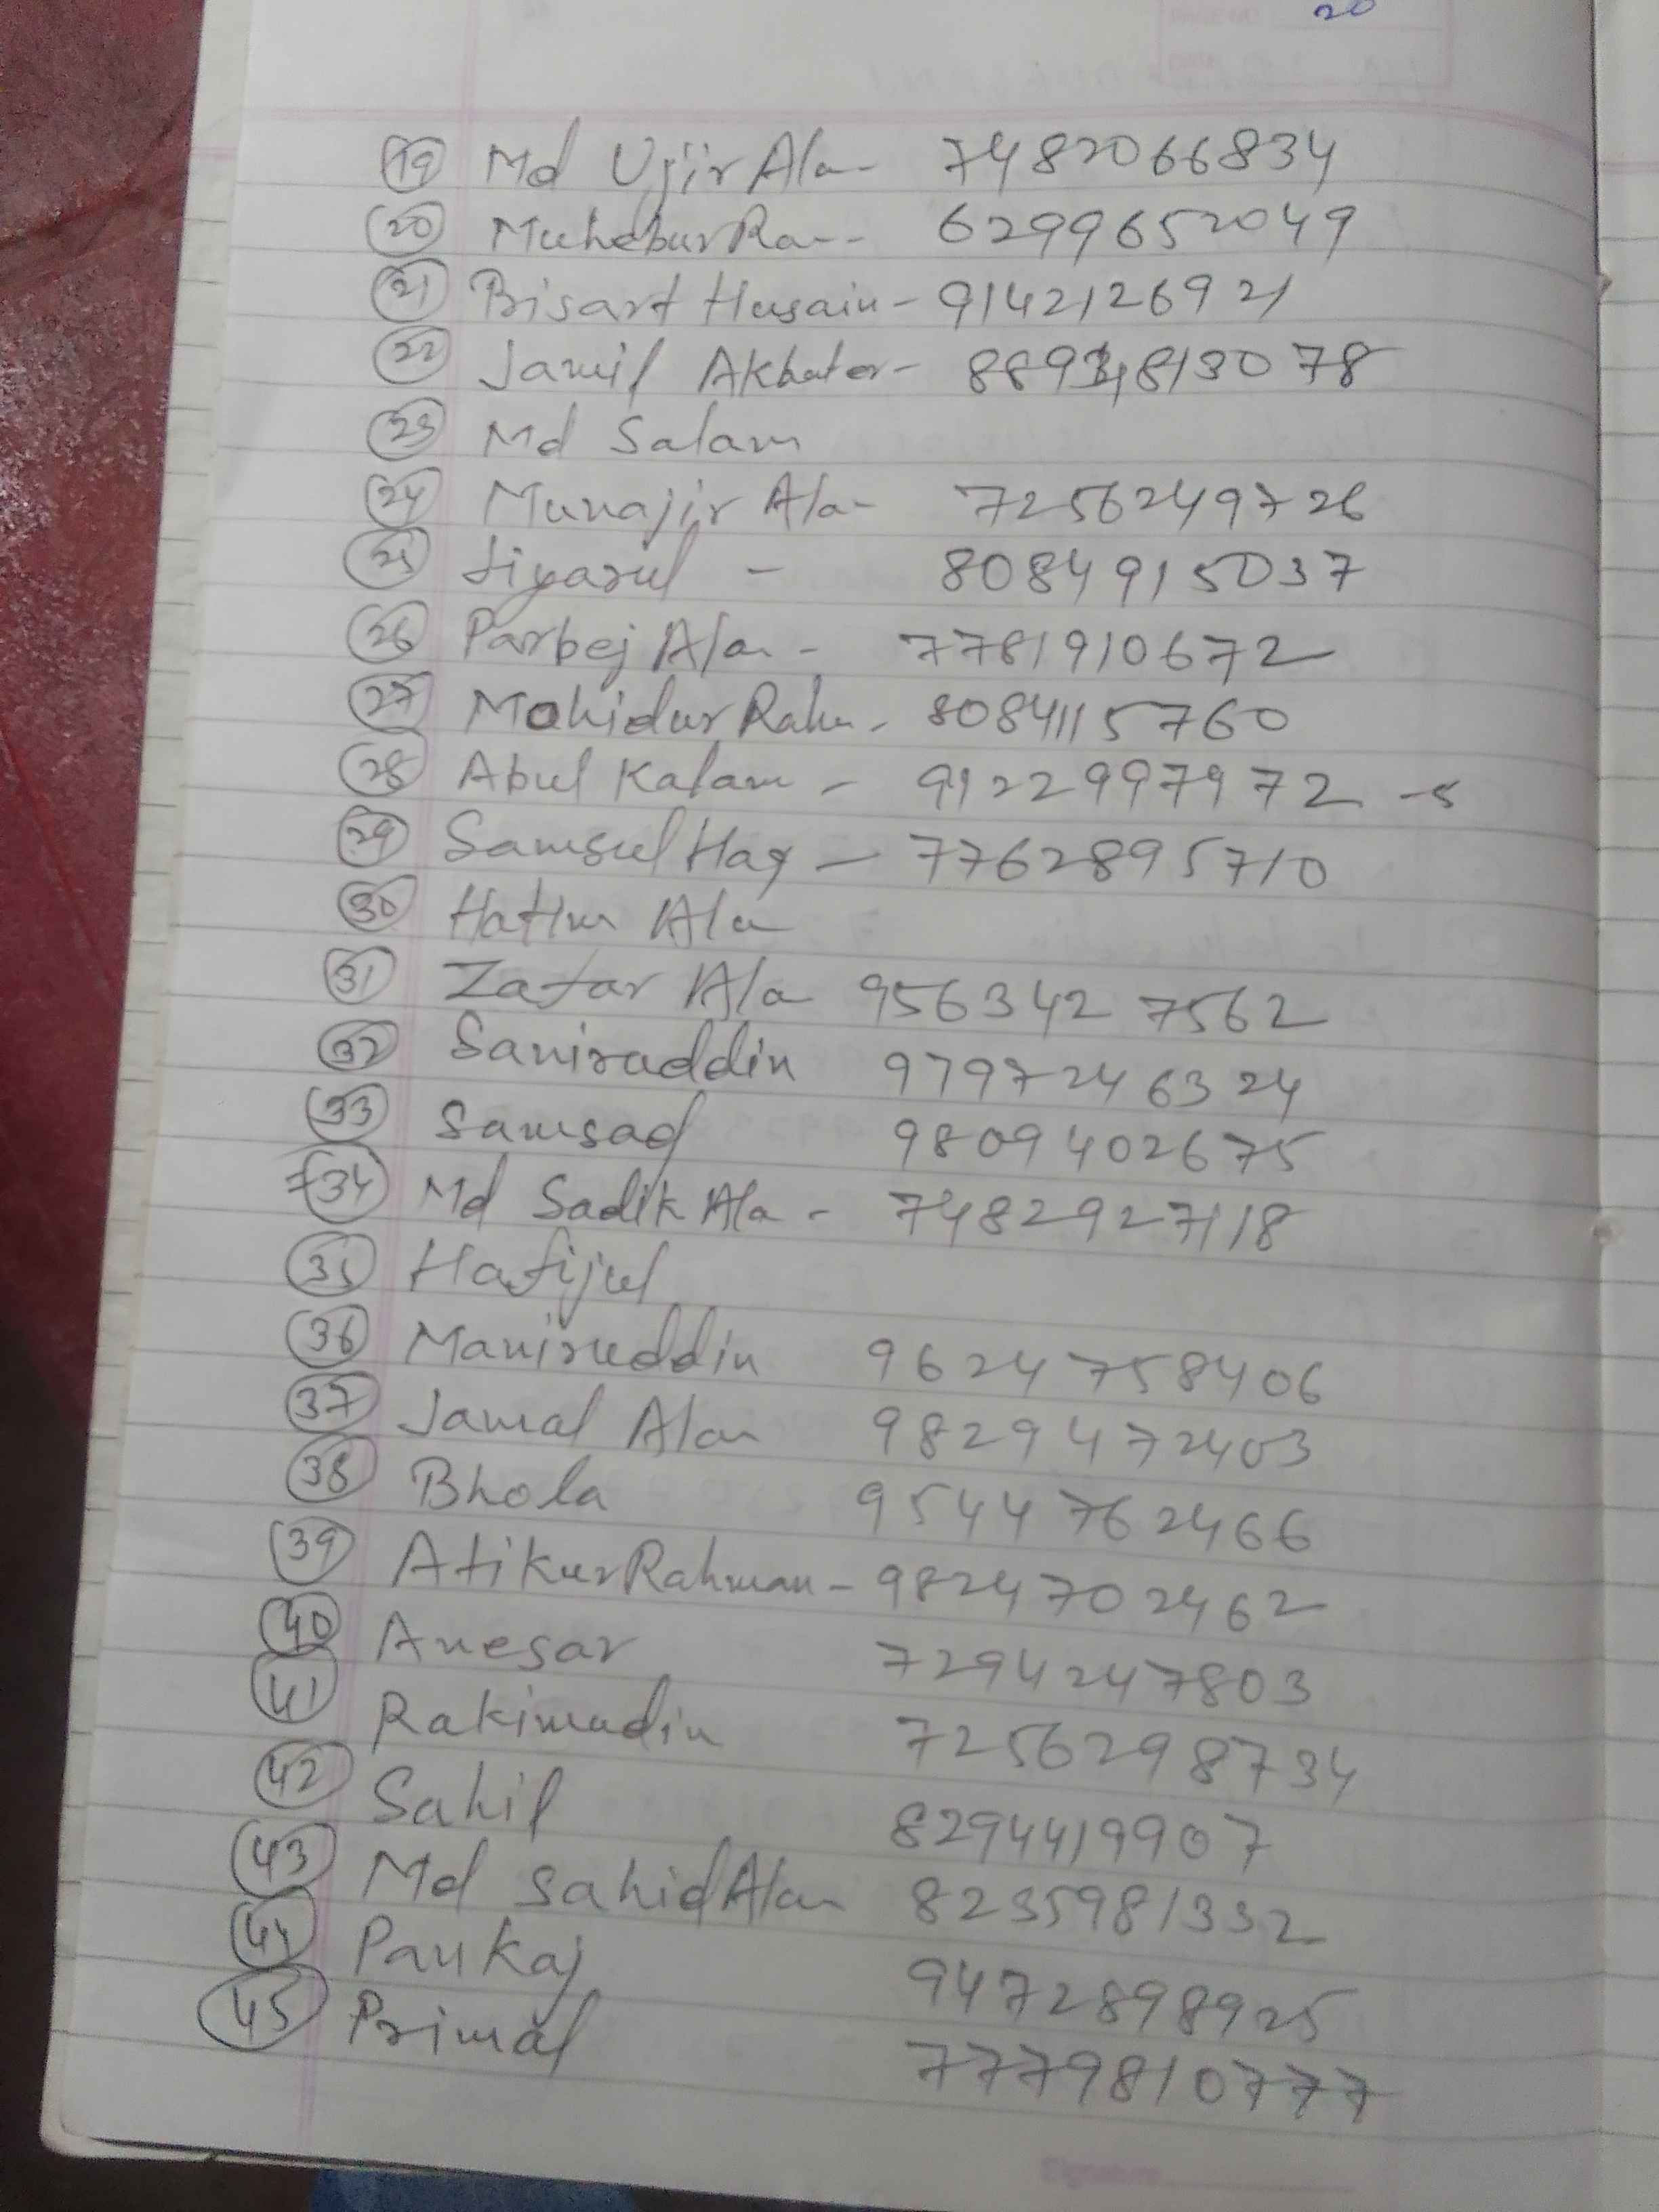 20
19 Md Ujir Ala- 7482066834
20 Muhebur Ra-- 6299652049
21 Bisart Husain - 9142126921
22 Jamil Akhater- 88934813078
23 Md Salam
24 Munajir Ala- 7256249726
25 Jiyarul - 8084915037
26 Parbej Ala - 7781910672
27 Mohidur Rahm - 8084115760
28 Abul Kalam - 9122997972 -5
29 Samsul Haq - 7762895710
30 Hatim Ala
31 Zafar Ala 9563427562
32 Saniruddin 9797246324
33 Samsad 9809402675
34 Md Sadik Ala - 7482927118
35 Hafijul
36 Maniruddin 9624758406
37 Jamal Alam 9829472403
38 Bhola 9544762466
39 Atikur Rahman - 9824702462
40 Anesar 7294247803
41 Rakimudin 7256298734
42 Sahil 8294419907
43 Md Sahid Alam 8235981332
44 Pankaj 9472898925
45 Primal 7779810777
Signature